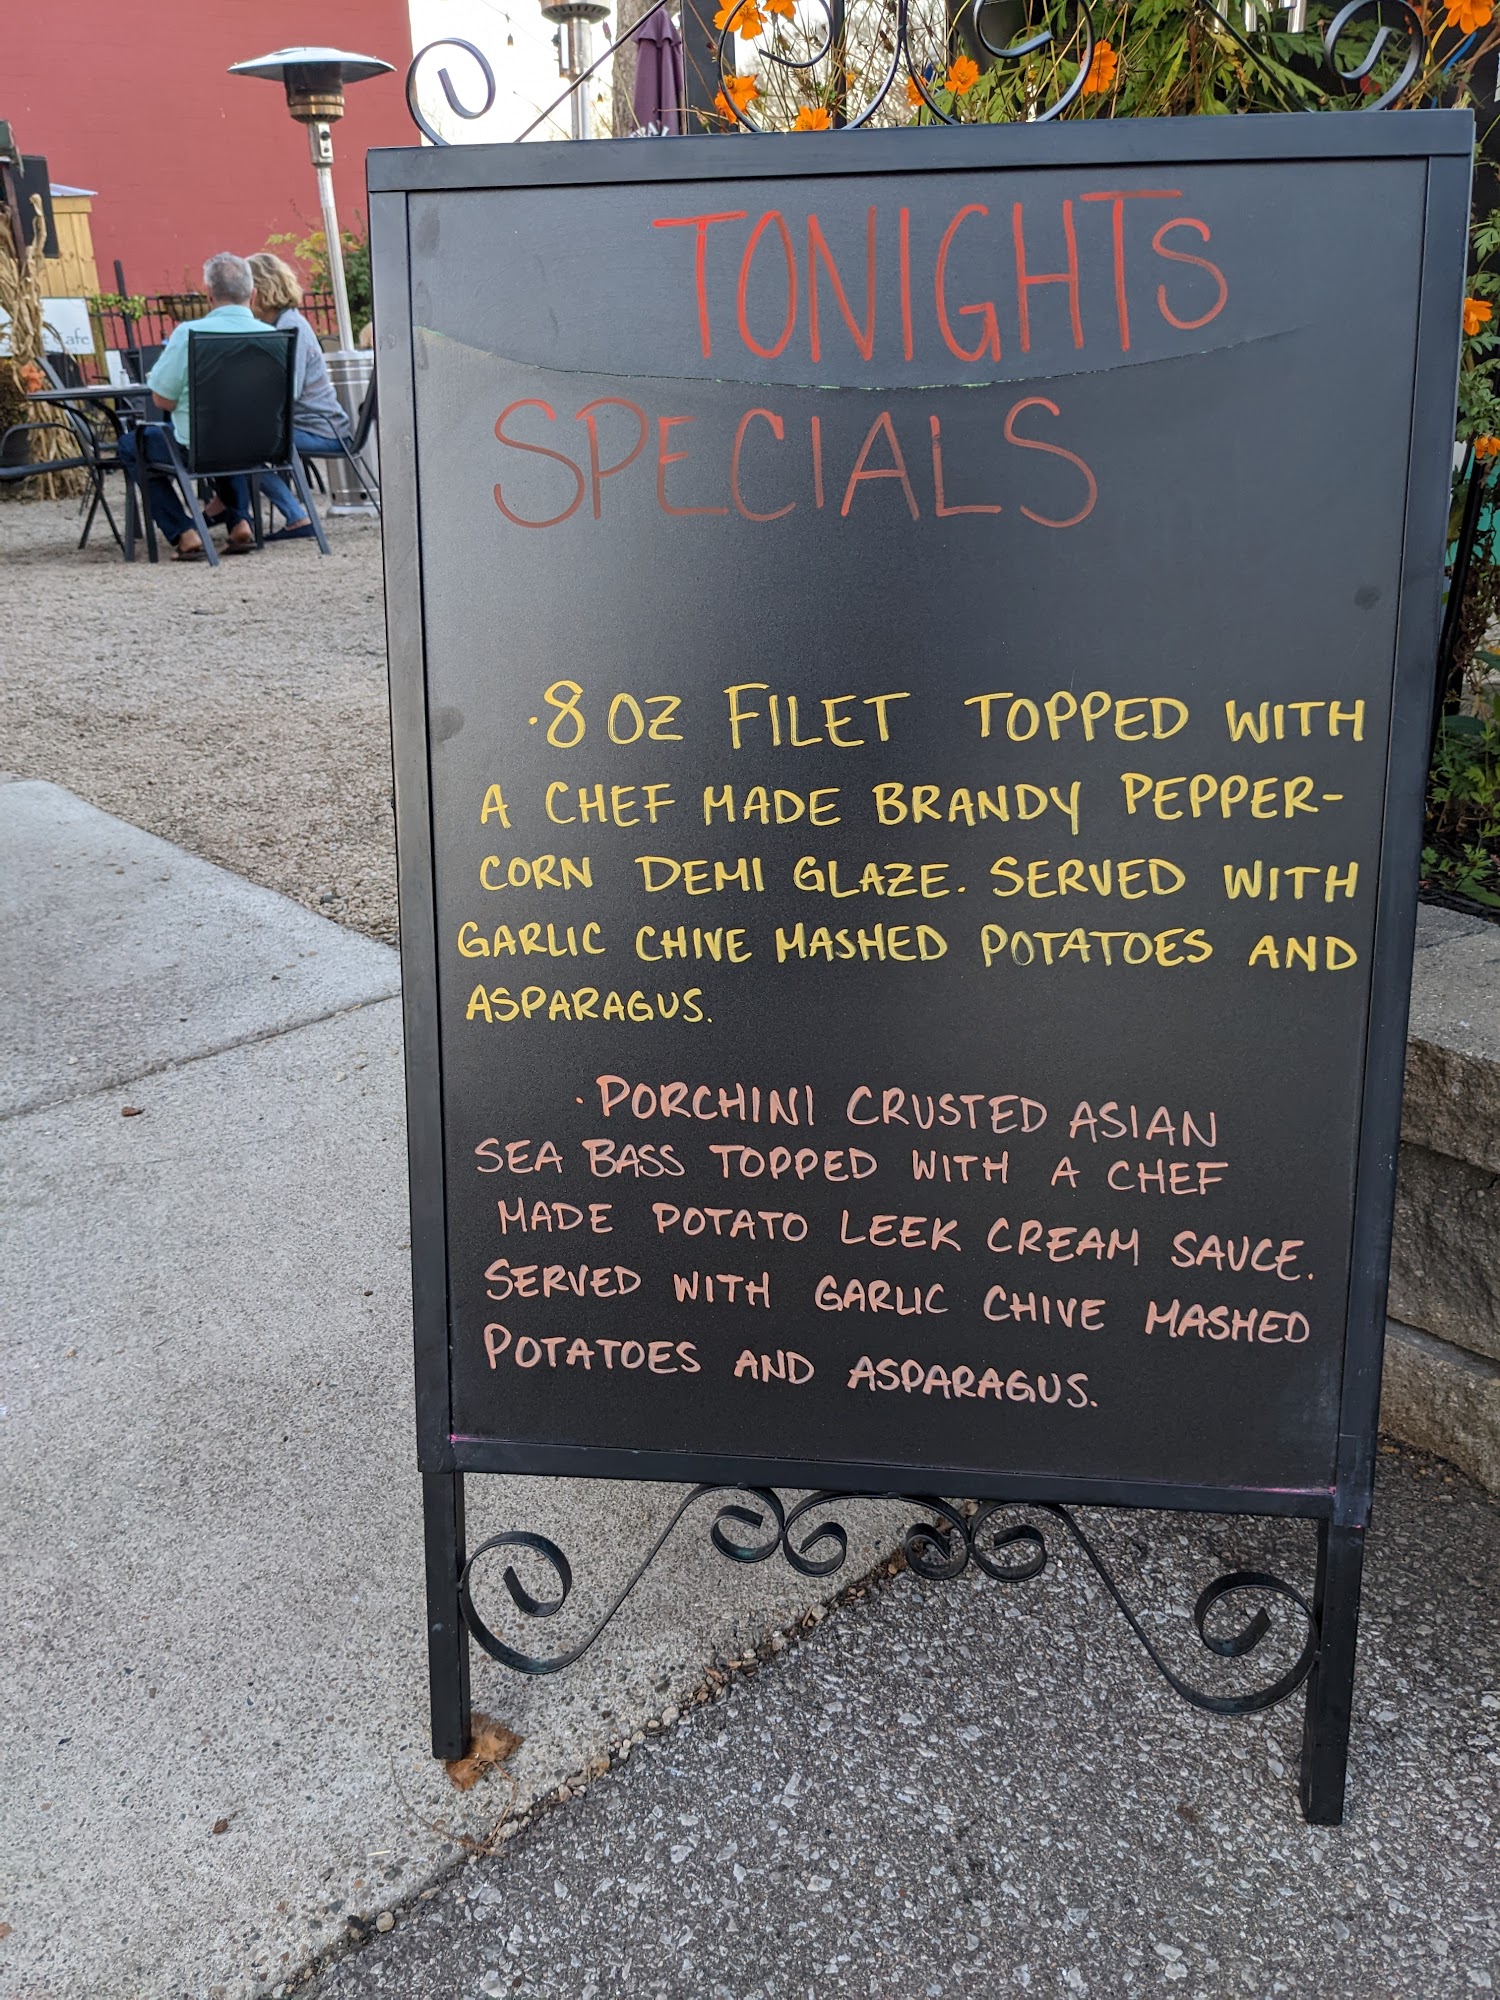 TONIGHTS
SPECIALS
·8 OZ FILET TOPPED WITH
A CHEF MADE BRANDY PEPPER-
CORN DEMI GLAZE. SERVED WITH
GARLIC CHIVE MASHED POTATOES AND
ASPARAGUS.
·PORCHINI CRUSTED ASIAN
SEA BASS TOPPED WITH A CHEF
MADE POTATO LEEK CREAM SAUCE.
SERVED WITH GARLIC CHIVE MASHED
POTATOES AND ASPARAGUS.
Cafe